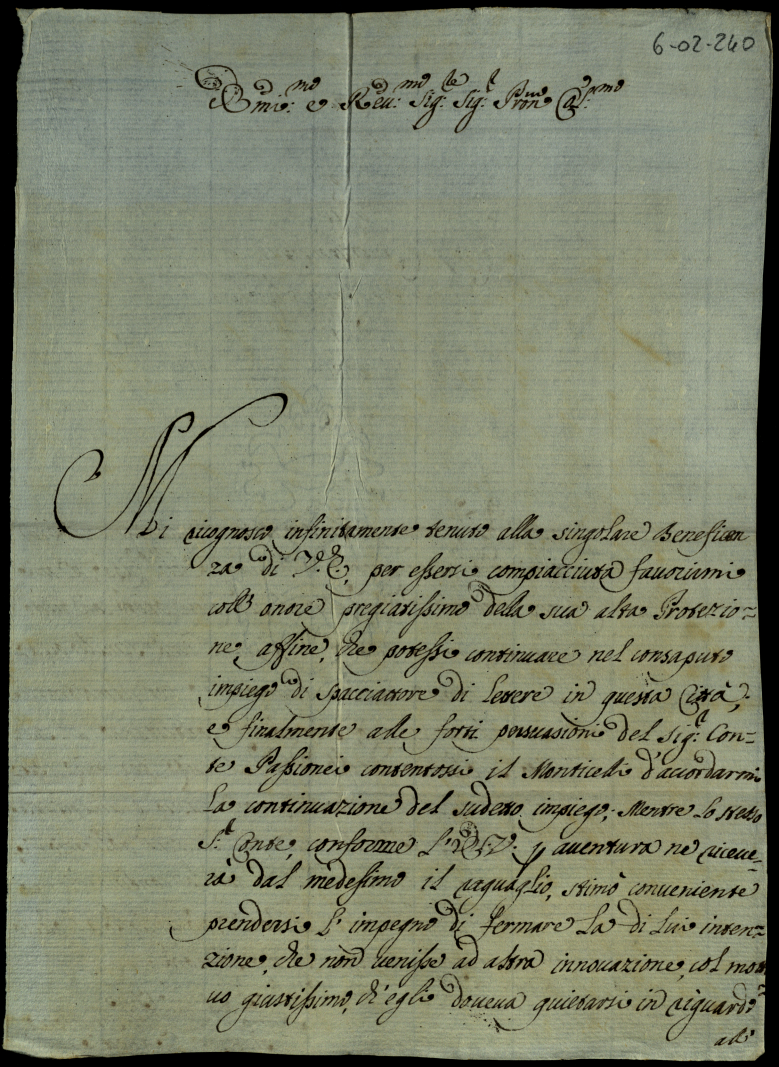 6-02-240
Emi:mo e Reu:mo Sig:re Sig:r Pron Col:mo
Mi ricognosco infinitamente tenuto alla singolare Beneficen
za di V.E. per essersi compiacciuta fauorirmi
coll' onore pregiatissimo della sua alta Protezio=
ne, affine, che potessi continuare nel consaputo
impiego di Spacciatore di lettere in questa Città;
e finalmente alle forti persuasioni del Sig:r Con=
te Passionei contentossi il Monticelli d'accordarmi
la continuazione del sudetto impiego; Mentre lo stesso
S:r Conte, conforme l' E.V. p auentura ne riceue=
rà dal medesimo il raguaglio, stimò conueniente
prendersi l' impegno di fermare la di lui inten=
zione, che non uenisse ad altra innouazione, col moti
uo giustissimo, ch'egli doueua quietarsi in riguardo
all'